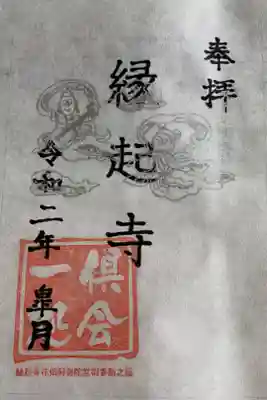 奉拝
縁起寺
令和二年
皐月
倶会
一処